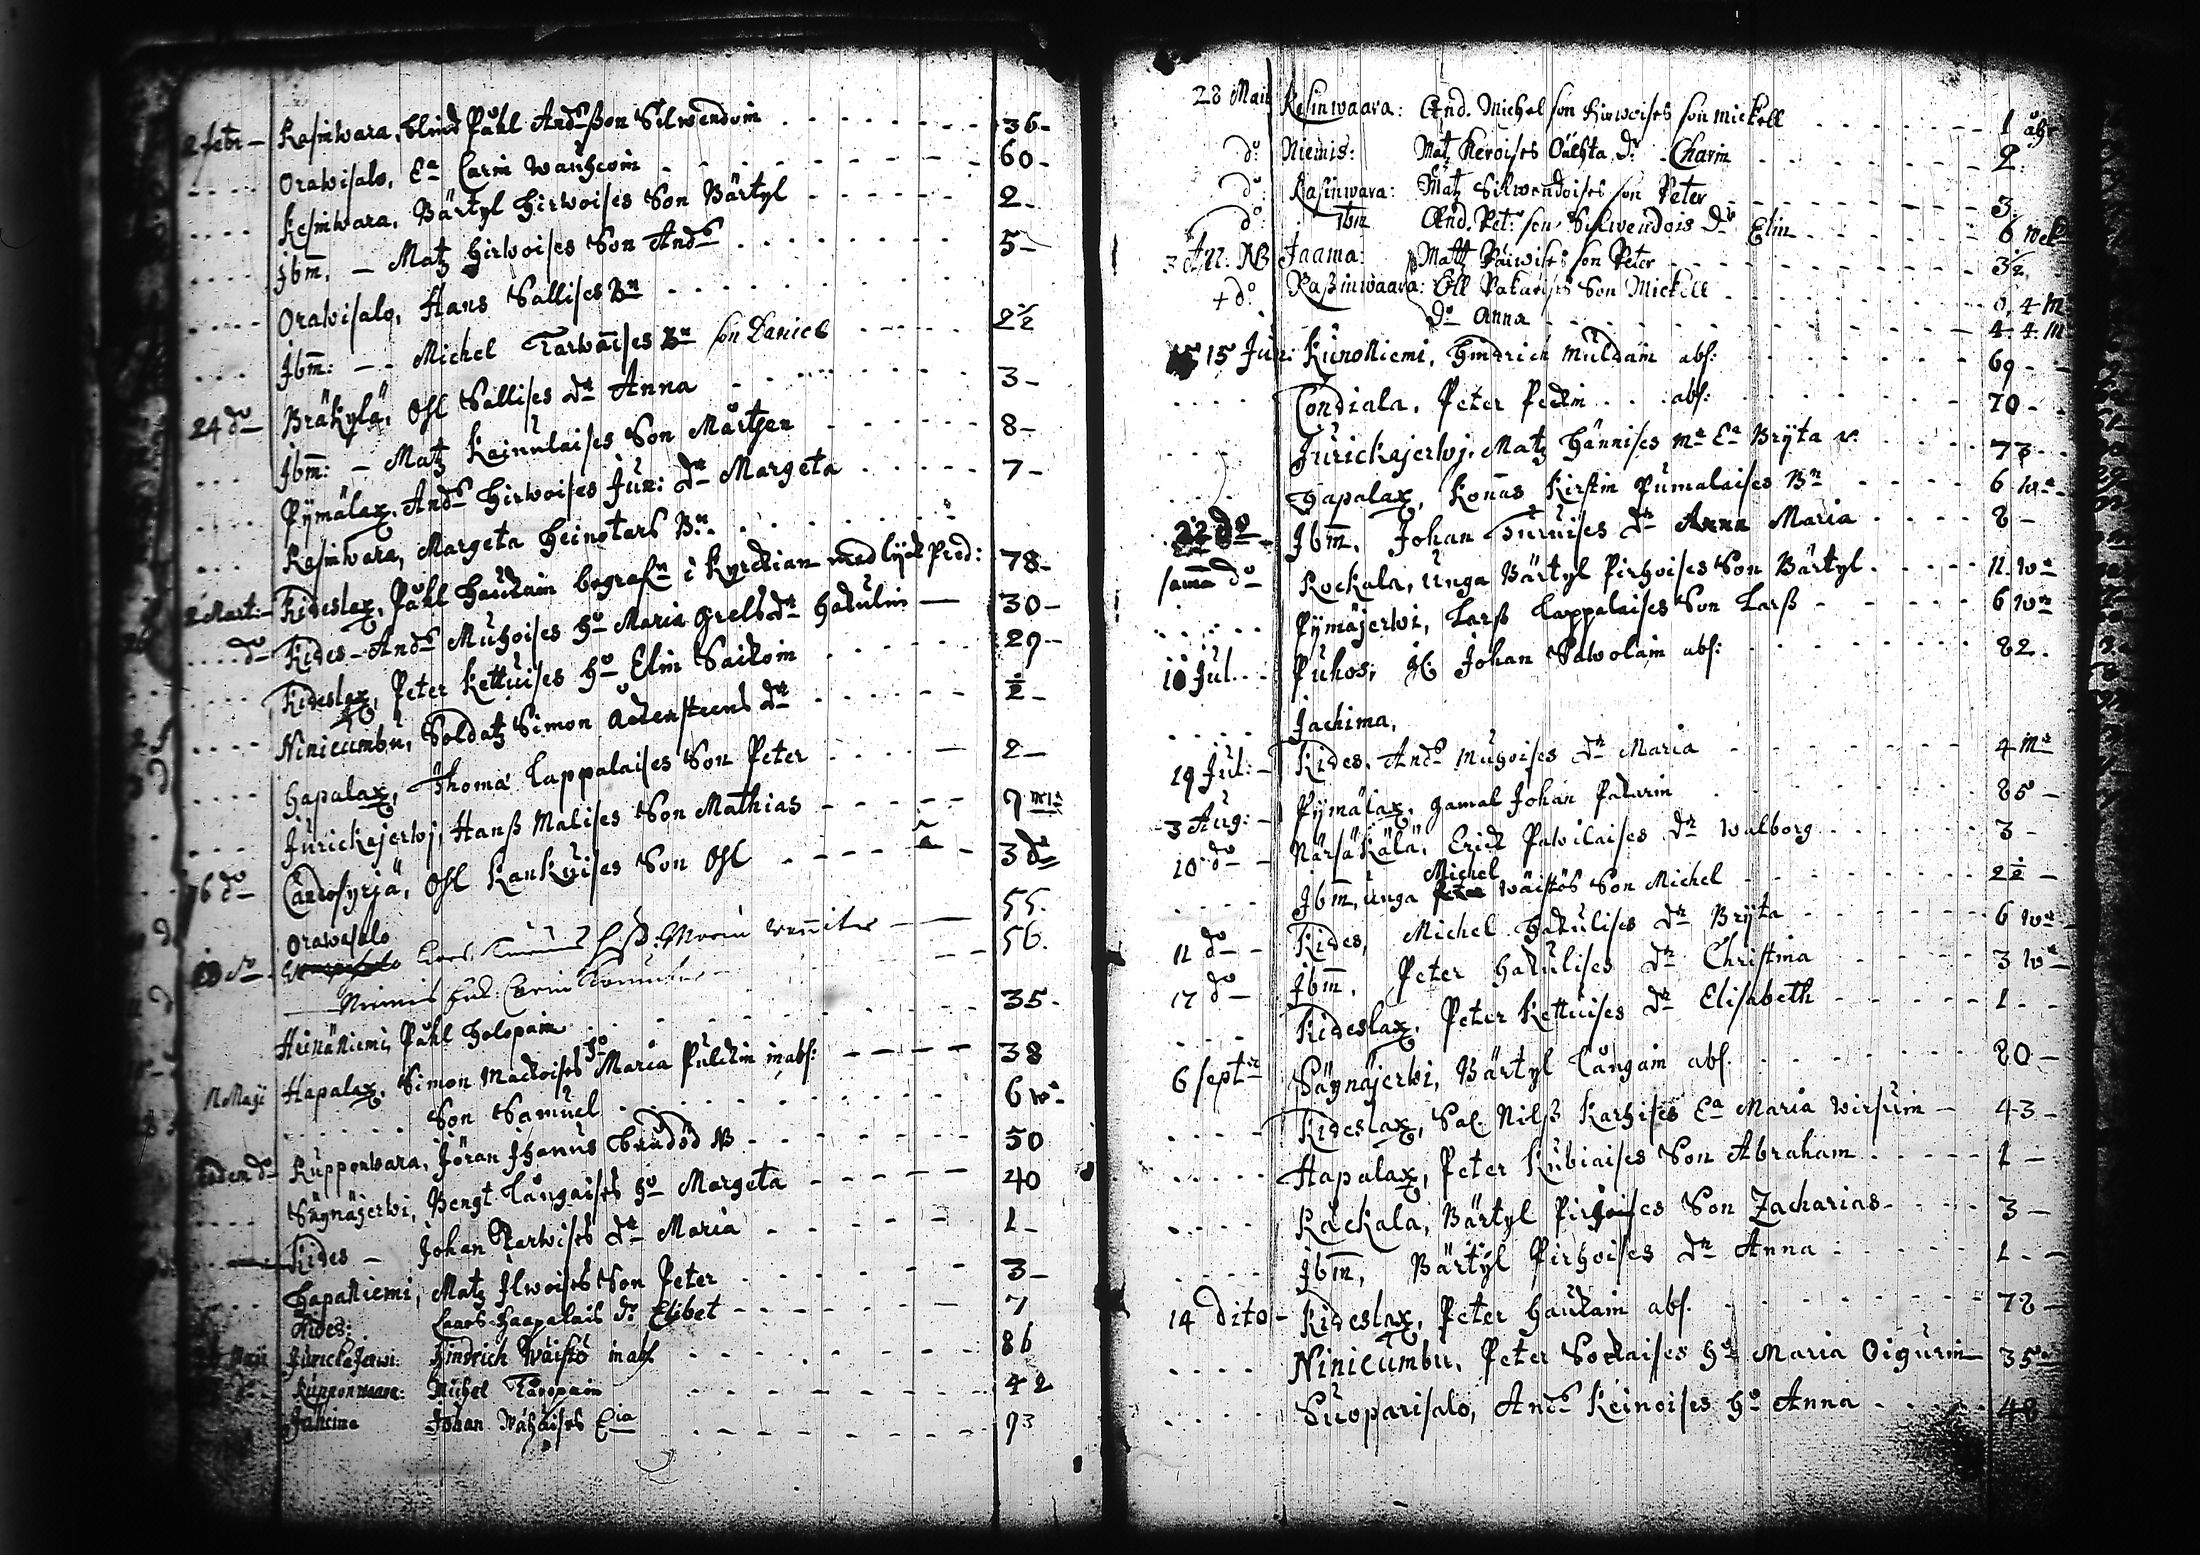 2 febr – Kasinwara, blind Påhl Andsson Silwendoin 36 –
Orawisalo, Ea Carin Wauhcoin 60 –
Kesinwara, Bärtyl Hirwoises Son Bärtyl 2 –
Ibm. – Matz Hirwoises Son Ands 5 –
Orawisalo, Hans Sallises Bn
Ibm: – Michel Tarwaises Bn son Daniel 2 1/2
24 do Bräkylä, Ohl Sallises dr Anna 3 –
Ibm: – Matz Kainulaises Son Mårtjen 8 –
Pymälax, Ands Hirwoises Jun: dr Margeta 7 –
Kasinwara, Margeta Heinotars Bn
2 Mart: – Kideslax, Påhl Haukain begrafn i Kyrckian med lijck Pred: 78 –
do Kides – Ands Muhoises Ho Maria Grels dr Hakulin 30 –
Kideslax, Peter Kettuises Ho Elin Saikoin 29 –
Ninicumbu, Soldatz Simon dr 1/2 –
Hapalax, Thoma Lappalaises Son Peter 2 –
Jurickajerwj, Hanss Malises Son Mathias 9 ms
16 do Ohl Kankuises Son Ohl 3 do
Orawisalo 55.
Niemis Carin 56.
Heinäniemi, Påhl Holopain 35 –
Maji Hapalax, Simon Mackoises Ho Maria Pulckin inabs: 38
Son Samuel 6 w
do Rupponwara, Jöran Ihanus brådöd NB 50
Säynäjerwi, Bengt Långaises Ho Margeta 40
Kides – Johan Tarwises dr Maria 1 –
Hapaniemi, Matz Ilwoises Son Peter 3 –
Kides: Laars Haapalais dr Elibet 7
Maji Juricka Jerwi: Hindrich Wäistö inabs 86
Rupponwaara: Michel Taropain 42
Jahcima Johan Wähäises Eia 93
28 Maii Kesinwaara: And. Michel son Hirwoises son Mickell 1 åhr
do Niemis: Matz Keroises Dåchta. dr Charin 2.
do Kasinwara: Matz Silwendoises son Peter 3.
do Ibm And. Pet: son Silwendois dr Elin 6 wek
3 Jun: NB Jaama: Matt Päiwises son Peter 3 1/2
+ do Rassinwaara: Oll Pakarises Son Mickell 0, 4 M
do Anna 4. 4. M
15 Jun: Kunoniemi, Hindrich Muldain abs: 69 –
Condiala, Peter Peckin abs: 70 –
Jurickajerwj, Matz Hännises ma Ea Bryta v: 73
Hapalax, Konas Kirstin Pumalaises Bn 6 wr
22 do – Ibm, Johan Hirwises dr Anna Maria 8 –
sama do Rockala, Unga Bärtyl Pirhoises Son Bärtyl 11 wr
Pymäjerwi, Larss Lappalaises Son Larss 6 wr
10 Jul. Puhos, gl: Johan Sawolain abs: 82.
Jachima,
19 Jul: – Kides, Ands Muhoises dr Maria 4 ms
3 Aug: – Pymälax, gamal Johan Pakarin 85 –
10 do – Närsäkälä, Erick Pawilaises dr Walborg 3 –
Ibm, unga Michel Wäistös Son Michel 2 1/2 –
11 do – Kides, Michel Hakulises dr Bryta 6 wr
17 do – Ibm, Peter Hakulises dr Christina 3 wr
Kideslax, Peter Kettuises dr Elisabeth 1 –
6 Septr Säynäjerwi, Bärtyl Långain abs. 80 –
Kideslax, Sal. Nilss Karhises Ea Maria Wirsuin – 43 –
Hapalax, Peter Kubiaises Son Abraham 1 –
Räckala, Bärtyl Pirhoises Son Zacharias 3 –
Ibm, Bärtyl Pirhoises dr Anna 1 –
14 dito – Kideslax, Peter Haukain abs. 78 –
Ninicumbu, Peter Sockaises Ho Maria Oigurin – 35
Suoparisalo, Ands Keinoises Ho Anna 48